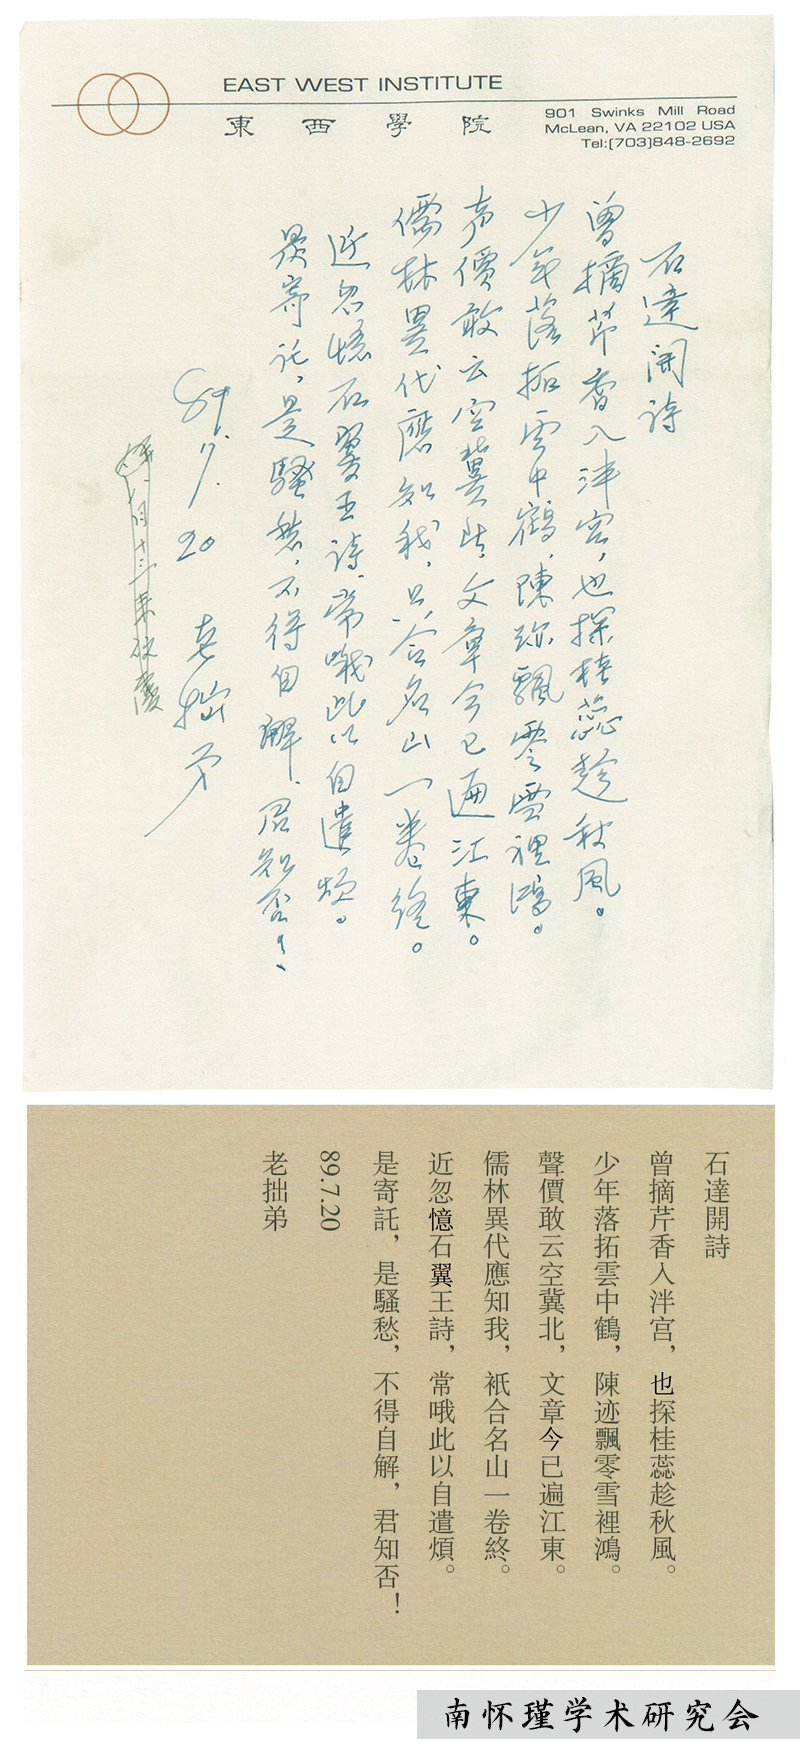 EAST WEST INSTITUTE
東西學院
901 Swinks Mill Road
McLean, VA 22102 USA
Tel:(703)848-2692
石達開詩
曾摘芹香入泮宮，也探桂蕊趁秋風。
少年落拓雲中鶴，陳跡飄零雪裡鴻。
声價敢云空冀北，文章今已遍江東。
儒林異代應知我，只合名山一卷終。
近忽憶石翼王詩，常哦此以自遣煩。
是寄託，是騷愁，不得自解，君知否！
89.7.20 老拙弟
石達開詩
曾摘芹香入泮宮，也探桂蕊趁秋風。
少年落拓雲中鶴，陳迹飄零雪裡鴻。
聲價敢云空冀北，文章今已遍江東。
儒林異代應知我，祇合名山一卷終。
近忽憶石翼王詩，常哦此以自遣煩。
是寄託，是騷愁，不得自解，君知否！
89.7.20
老拙弟
南怀瑾学术研究会